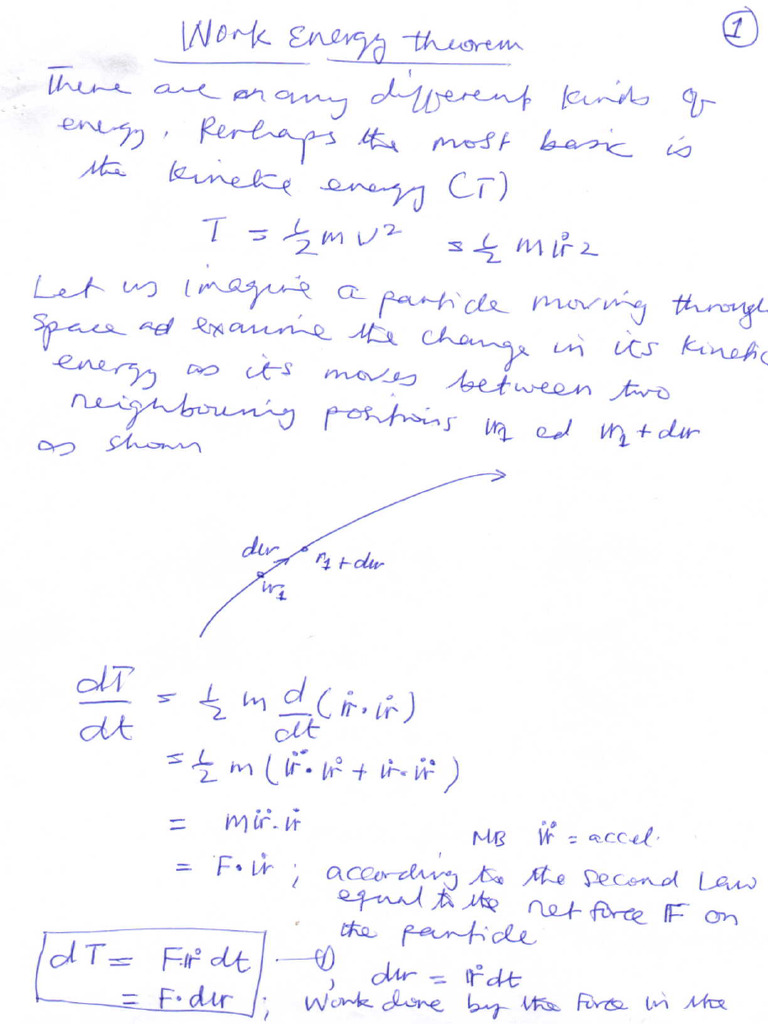 Work Energy theorem
①
There are many different kinds of
energy. Perhaps the most basic is
the kinetic energy (T)
T = ½ m v² = ½ m ṙ²
Let us imagine a particle moving through
space ad examine the change in its kinetic
energy as its moves between two
neighbouring positions r₁ ad r₁ + dr
as shown
dr
r₁ + dr
r₁
dT/dt = ½ m d/dt (ṙ · ṙ)
= ½ m (r̈ · ṙ + ṙ · r̈)
= m r̈ · ṙ
NB r̈ = accel.
= F · ṙ ; according to the second Law
equal to the net force F on
the particle
dT = F·ṙ dt — ①
, dr = ṙ dt
= F · dr ; Work done by the Force in the